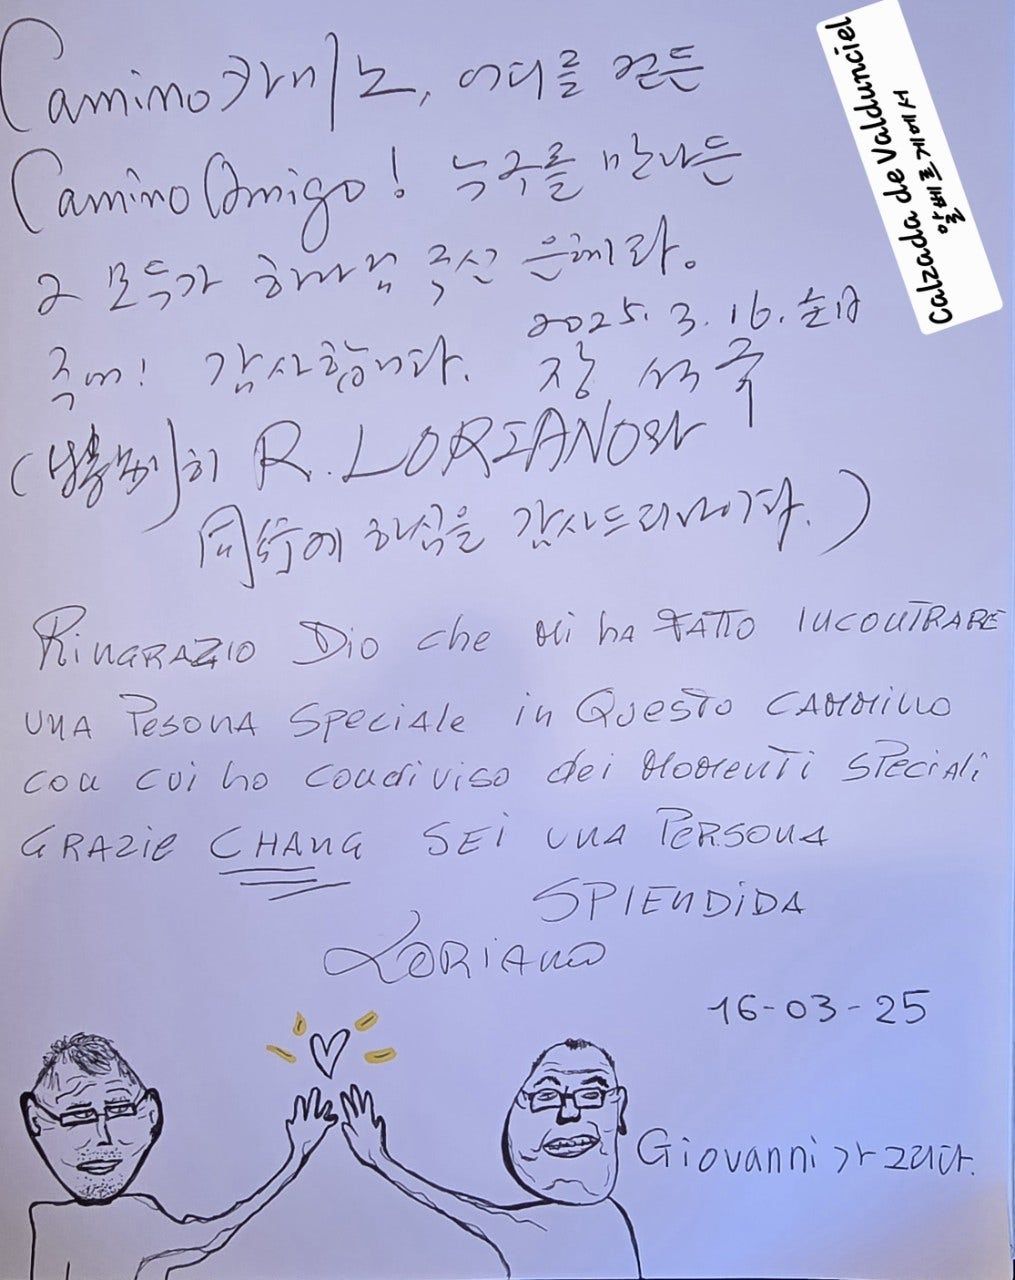 Camino 카미노, 어디를 걷든
Camino Amigo! 누구를 만나든
그 모두가 하나님 주신 은혜라.
주여! 감사합니다. 2025. 3. 16. 主日
장
(特別히 R. LORIANO와
同行에 하심을 감사드리나이다.)
RINGRAZIO DIO che Mi ha FATTO INCONTRARE
UNA PESONA SPECIALE in QUESTO CAMMINO
CON CUI ho CONDIVISO dei MOMENTI SPECIALI
GRAZIE CHANG SEI UNA PERSONA
SPLENDIDA
LORIANO
16-03-25
Giovanni가 그리다.
Calzada de Valdunciel
알베르게에서